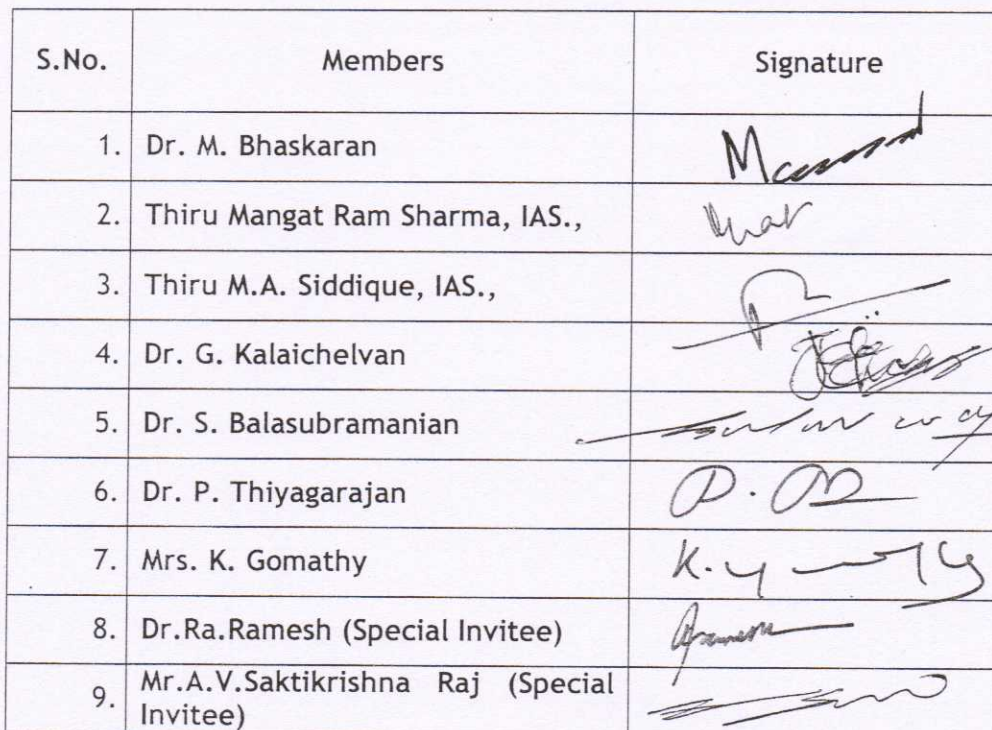 S.No. Members Signature
1. Dr. M. Bhaskaran
2. Thiru Mangat Ram Sharma, IAS.,
3. Thiru M.A. Siddique, IAS.,
4. Dr. G. Kalaichelvan
5. Dr. S. Balasubramanian
6. Dr. P. Thiyagarajan
7. Mrs. K. Gomathy
8. Dr.Ra.Ramesh (Special Invitee)
9. Mr.A.V.Saktikrishna Raj (Special
Invitee)